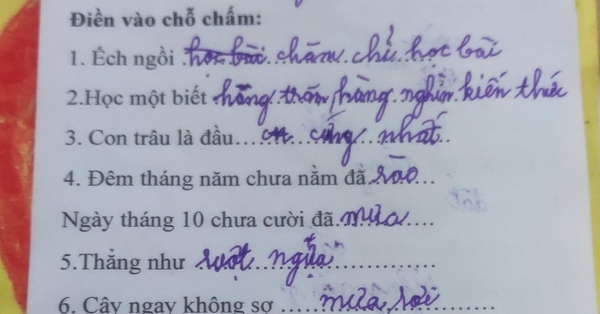 Điền vào chỗ chấm:
1. Ếch ngồi học bài chăm chỉ học bài
2.Học một biết hằng trăm, hàng nghìn kiến thức
3. Con trâu là đầu...... cứng nhất..
4. Đêm tháng năm chưa nằm đã rào...
Ngày tháng 10 chưa cười đã mưa....
5.Thẳng như ruột ngựa................
6. Cây ngay không sợ ......mưa rơi..........